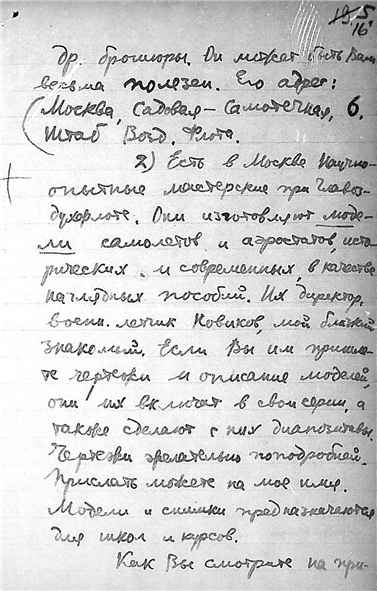 19 5/16
др. брошюры. Он может быть Вам
весьма полезен. Его адрес:
(Москва, Садовая-Самотечная, 6.
Штаб Возд. Флота.
2) Есть в Москве Научно-
опытные мастерские при Главоз-
духфлоте. Они изготовляют моде-
ли самолетов и аэростатов, исто-
рических и современных, в качестве
наглядных пособий. Их директор,
воен. летчик Новиков, мой близкий
знакомый. Если Вы им пришле-
те чертежи и описание моделей,
они их включат в свои серии, а
также сделают с них диапозитивы.
Чертежи желательно поподробней.
Прислать можете на мое имя.
Модели и снимки предназначаются
для школ и курсов.
Как Вы смотрите на при-